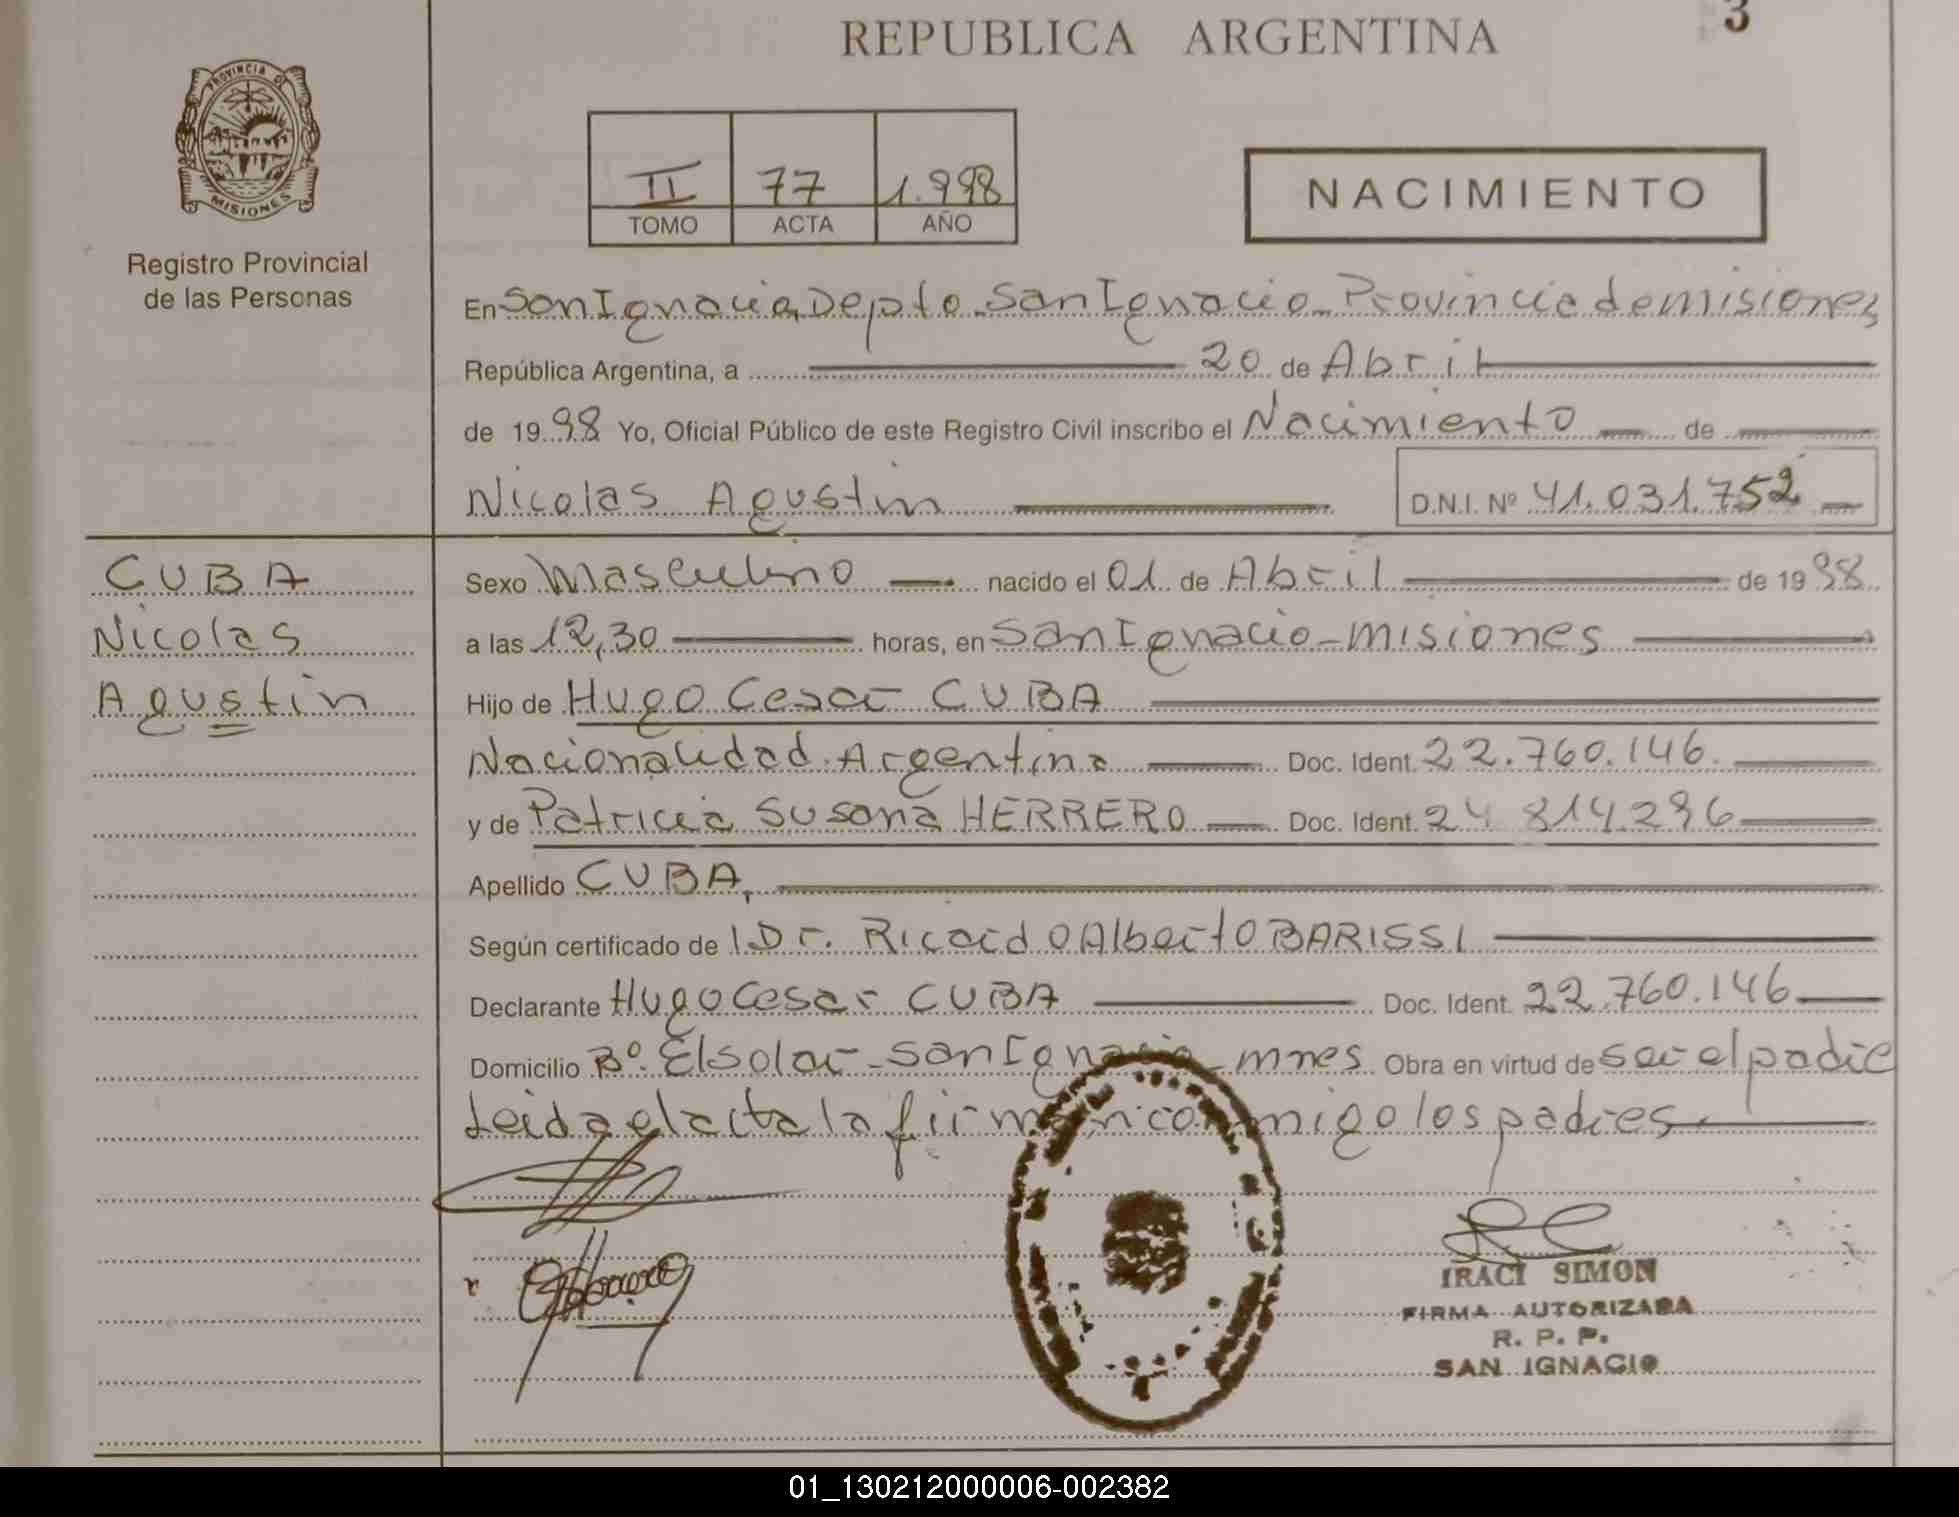 REPUBLICA ARGENTINA
3
PROVINCIA DE
MISIONES
Registro Provincial
de las Personas
II 77 1.998
TOMO ACTA AÑO
NACIMIENTO
En San Ignacio, Depto. San Ignacio - Provincia de misiones
República Argentina, a 20 de Abril
de 1998 Yo, Oficial Público de este Registro Civil inscribo el Nacimiento de
Nicolas Agustin D.N.I. Nº 41.031.752
CUBA
Nicolas
Agustin
Sexo Masculino nacido el 01 de Abril de 1998
a las 12,30 horas, en San Ignacio - misiones
Hijo de Hugo Cesar CUBA
Nacionalidad Argentina Doc. Ident. 22.760.146.
y de Patricia Susana HERRERO Doc. Ident. 24 814.296
Apellido CUBA,
Según certificado de l Dr. Ricardo Alberto BARISSI
Declarante Hugo Cesar CUBA Doc. Ident. 22.760.146
Domicilio Bº. El solar - San Ignacio - mnes Obra en virtud de ser el padre
Leida el acta la firman conmigo los padres.
IRACI SIMON
FIRMA AUTORIZADA
R. P. P.
SAN IGNACIO
01_130212000006-002382